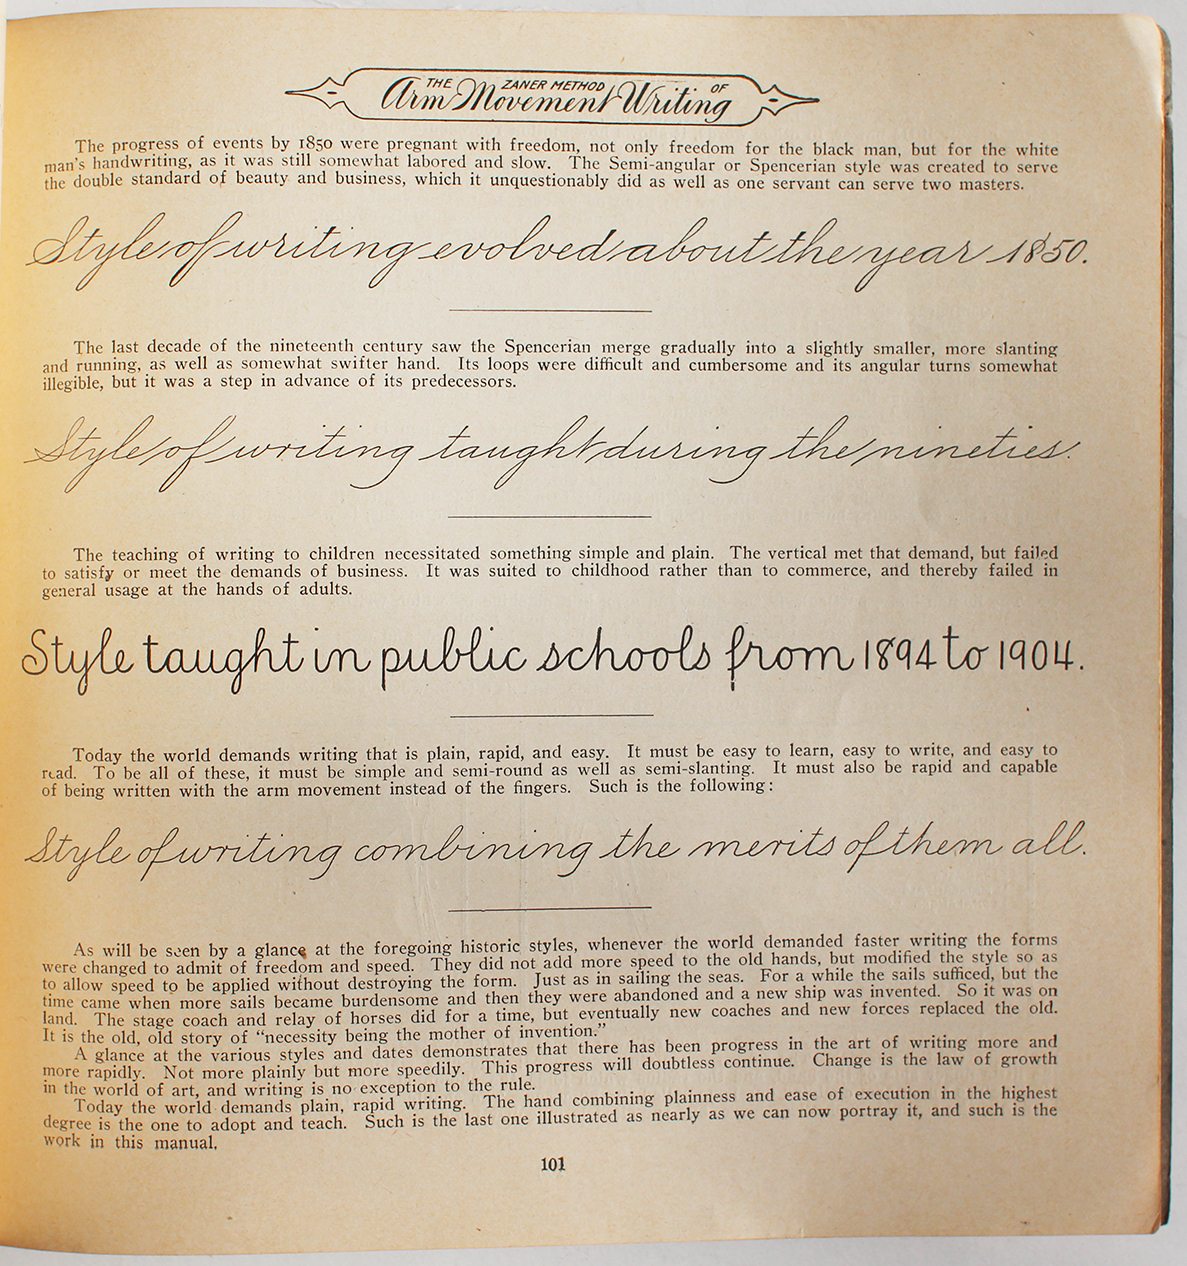 THE ZANER METHOD OF
Arm Movement Writing
The progress of events by 1850 were pregnant with freedom, not only freedom for the black man, but for the white
man's handwriting, as it was still somewhat labored and slow. The Semi-angular or Spencerian style was created to serve
the double standard of beauty and business, which it unquestionably did as well as one servant can serve two masters.
Style of writing evolved about the year 1850.
The last decade of the nineteenth century saw the Spencerian merge gradually into a slightly smaller, more slanting
and running, as well as somewhat swifter hand. Its loops were difficult and cumbersome and its angular turns somewhat
illegible, but it was a step in advance of its predecessors.
Style of writing taught during the nineties.
The teaching of writing to children necessitated something simple and plain. The vertical met that demand, but failed
to satisfy or meet the demands of business. It was suited to childhood rather than to commerce, and thereby failed in
general usage at the hands of adults.
Style taught in public schools from 1894 to 1904.
Today the world demands writing that is plain, rapid, and easy. It must be easy to learn, easy to write, and easy to
read. To be all of these, it must be simple and semi-round as well as semi-slanting. It must also be rapid and capable
of being written with the arm movement instead of the fingers. Such is the following:
Style of writing combining the merits of them all.
As will be seen by a glance at the foregoing historic styles, whenever the world demanded faster writing the forms
were changed to admit of freedom and speed. They did not add more speed to the old hands, but modified the style so as
to allow speed to be applied without destroying the form. Just as in sailing the seas. For a while the sails sufficed, but the
time came when more sails became burdensome and then they were abandoned and a new ship was invented. So it was on
land. The stage coach and relay of horses did for a time, but eventually new coaches and new forces replaced the old.
It is the old, old story of "necessity being the mother of invention."
A glance at the various styles and dates demonstrates that there has been progress in the art of writing more and
more rapidly. Not more plainly but more speedily. This progress will doubtless continue. Change is the law of growth
in the world of art, and writing is no exception to the rule.
Today the world demands plain, rapid writing. The hand combining plainness and ease of execution in the highest
degree is the one to adopt and teach. Such is the last one illustrated as nearly as we can now portray it, and such is the
work in this manual.
101